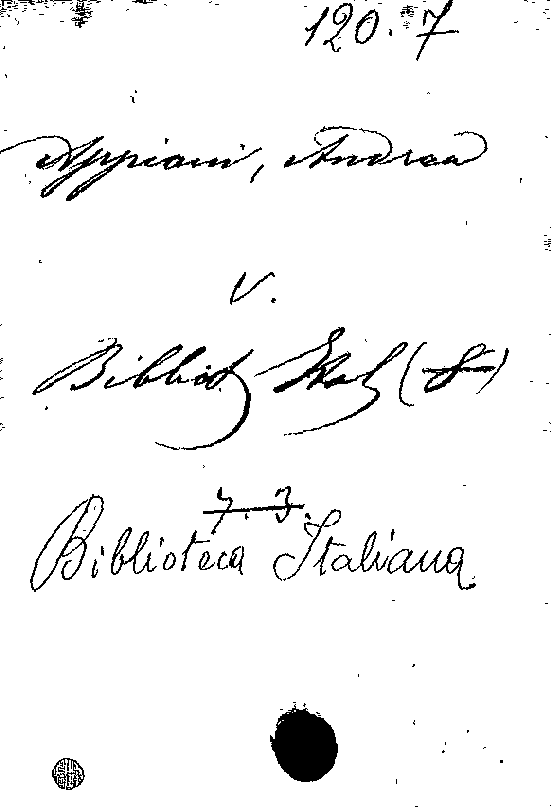 120. 7
Appiani, Andrea
V.
Bibliot. Ital. (8)
7. 3.
Biblioteca Italiana